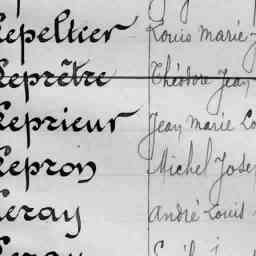 Lepeltier Louis Marie
Leprêtre Théodore Jean
Leprieur Jean Marie
Lepron Michel
Leray André Louis